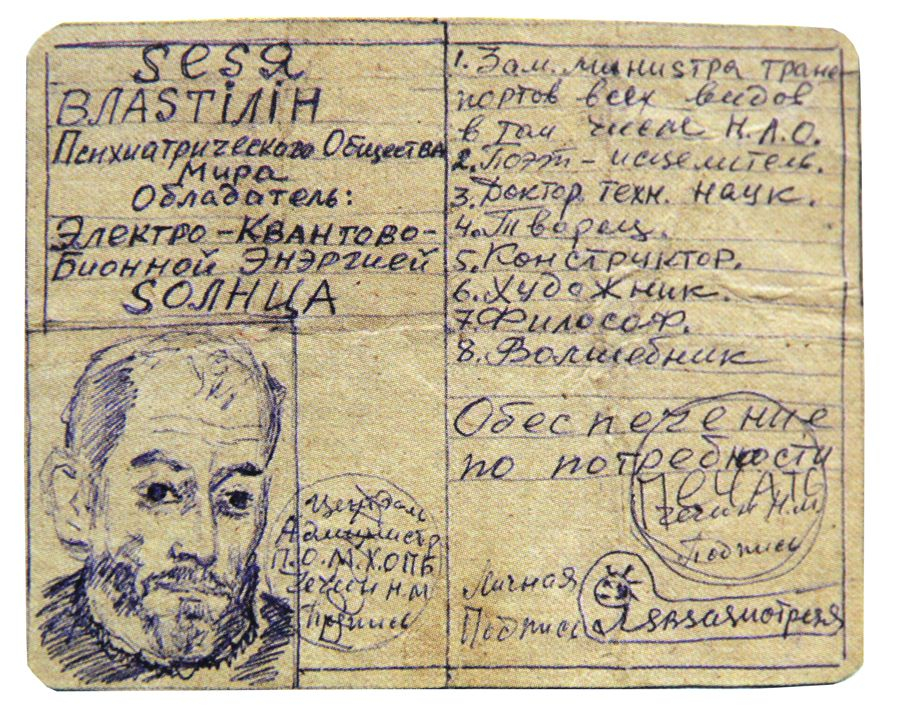 ꙄeꙄя
ВЛАꙄТIЛIН
Психиатрического Общества
Мира
Обладатель:
Электро-Квантово-
Бионной Энэргией
ꙄОЛНЦА
Централ
Администр
П.О.М.Х.ОПБ
Гечеси Н М
Подпись
1. Зам. миниꙅтра транс-
портов всех видов
в том числе Н.Л.О.
2. Поэт - исцелитель.
3. Доктор техн. наук.
4. Творец.
5. Конструктор.
6. Художник.
7. Философ.
8. Волшебник
Обеспечение
по потребности
ПечАТЬ
Н.М
Подпись
Личная
Подпись